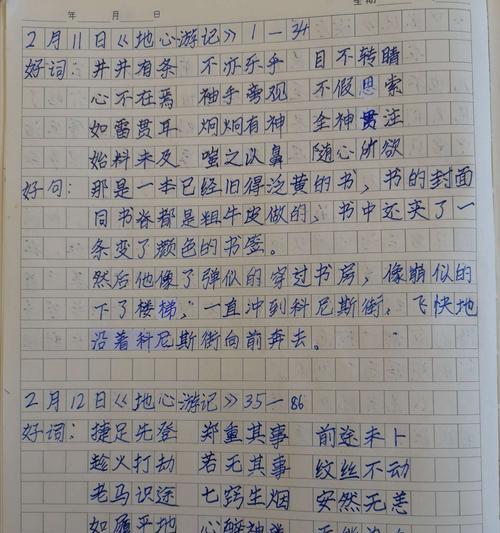 年 月 日
2月11日《地心游记》1—34
好词：井井有条 不亦乐乎 目不转睛
心不在焉 袖手旁观 不假思索
如雷贯耳 炯炯有神 全神贯注
始料未及 嗤之以鼻 随心所欲
好句：那是一本已经旧得泛黄的书，书的封面
同书脊都是粗牛皮做的，书中还夹了一
条变了颜色的书签。
然后他像了弹似的穿过书房，像崩似的
下了楼梯，一直冲到科尼斯街，飞快地
沿着科尼斯街向前奔去。
2月12日《地心游记》35—86
好词：捷足先登 郑重其事 前途未卜
趁火打劫 若无其事 纹丝不动
老马识途 七窍生烟 安然无恙
如履平地